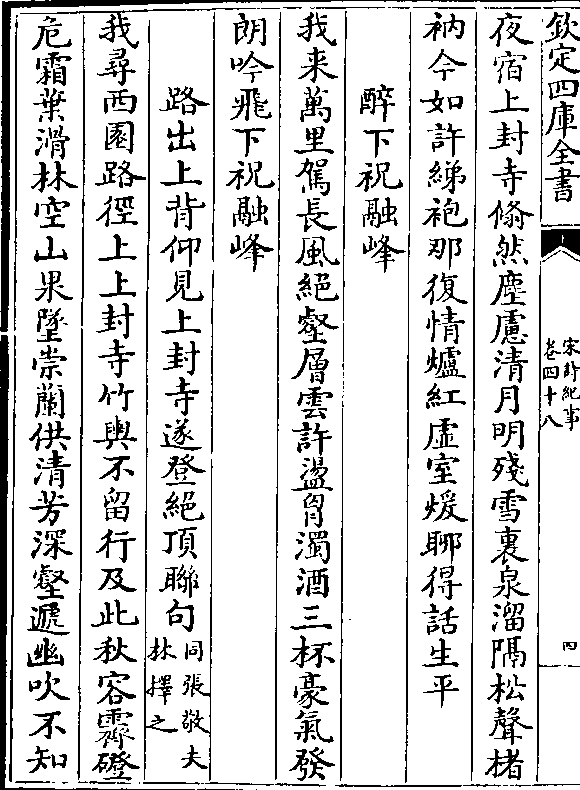 欽定四庫全書
宋詩紀事
卷四十八
四
夜宿上封寺翛然塵慮清月明殘雪裏泉溜隔松聲楮
衲今如許綈袍那復情爐紅虛室煖聊得話生平
醉下祝融峰
我来萬里駕長風絕壑層雲許盪胷濁酒三杯豪氣發
朗吟飛下祝融峰
路出上背仰見上封寺遂登絕頂聯句
同張敬夫
林擇之
我尋西園路徑上上封寺竹輿不留行及此秋容霽磴
危霜葉滑林空山果墜崇蘭供清芳深壑遞幽吹不知